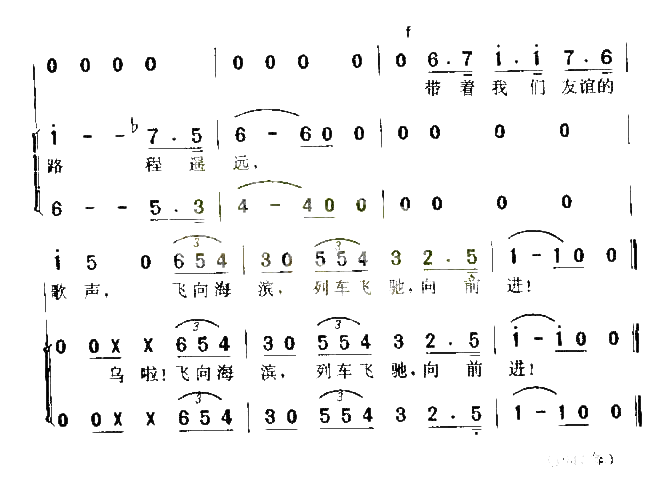 f
0 0 0 0 | 0 0 0 0 | 0 6.7 i.i 7.6 |
带着我们友谊的
i - - ♭7.5 | 6 - 6 0 0 | 0 0 0 0 |
路 程遥远,
6 - - 5.3 | 4 - 4 0 0 | 0 0 0 0 |
3 3
i 5 0 6 5 4 | 3 0 5 5 4 3 2.5 | 1 - 1 0 0 ‖
歌声, 飞向海滨, 列车飞驰,向前进!
3 3
0 0 X X 6 5 4 | 3 0 5 5 4 3 2.5 | i - i 0 0 ‖
乌啦!飞向海滨, 列车飞驰,向前进!
0 0 X X 6 5 4 | 3 0 5 5 4 3 2.5 | 1 - 1 0 0 ‖